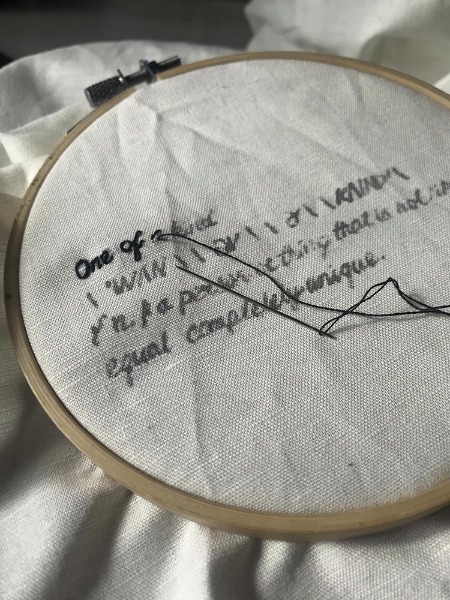 One of a kind
\ 'WAN \ \ \ ə \ \ KIND \
n. / a person or thing that is not
equal completely unique.